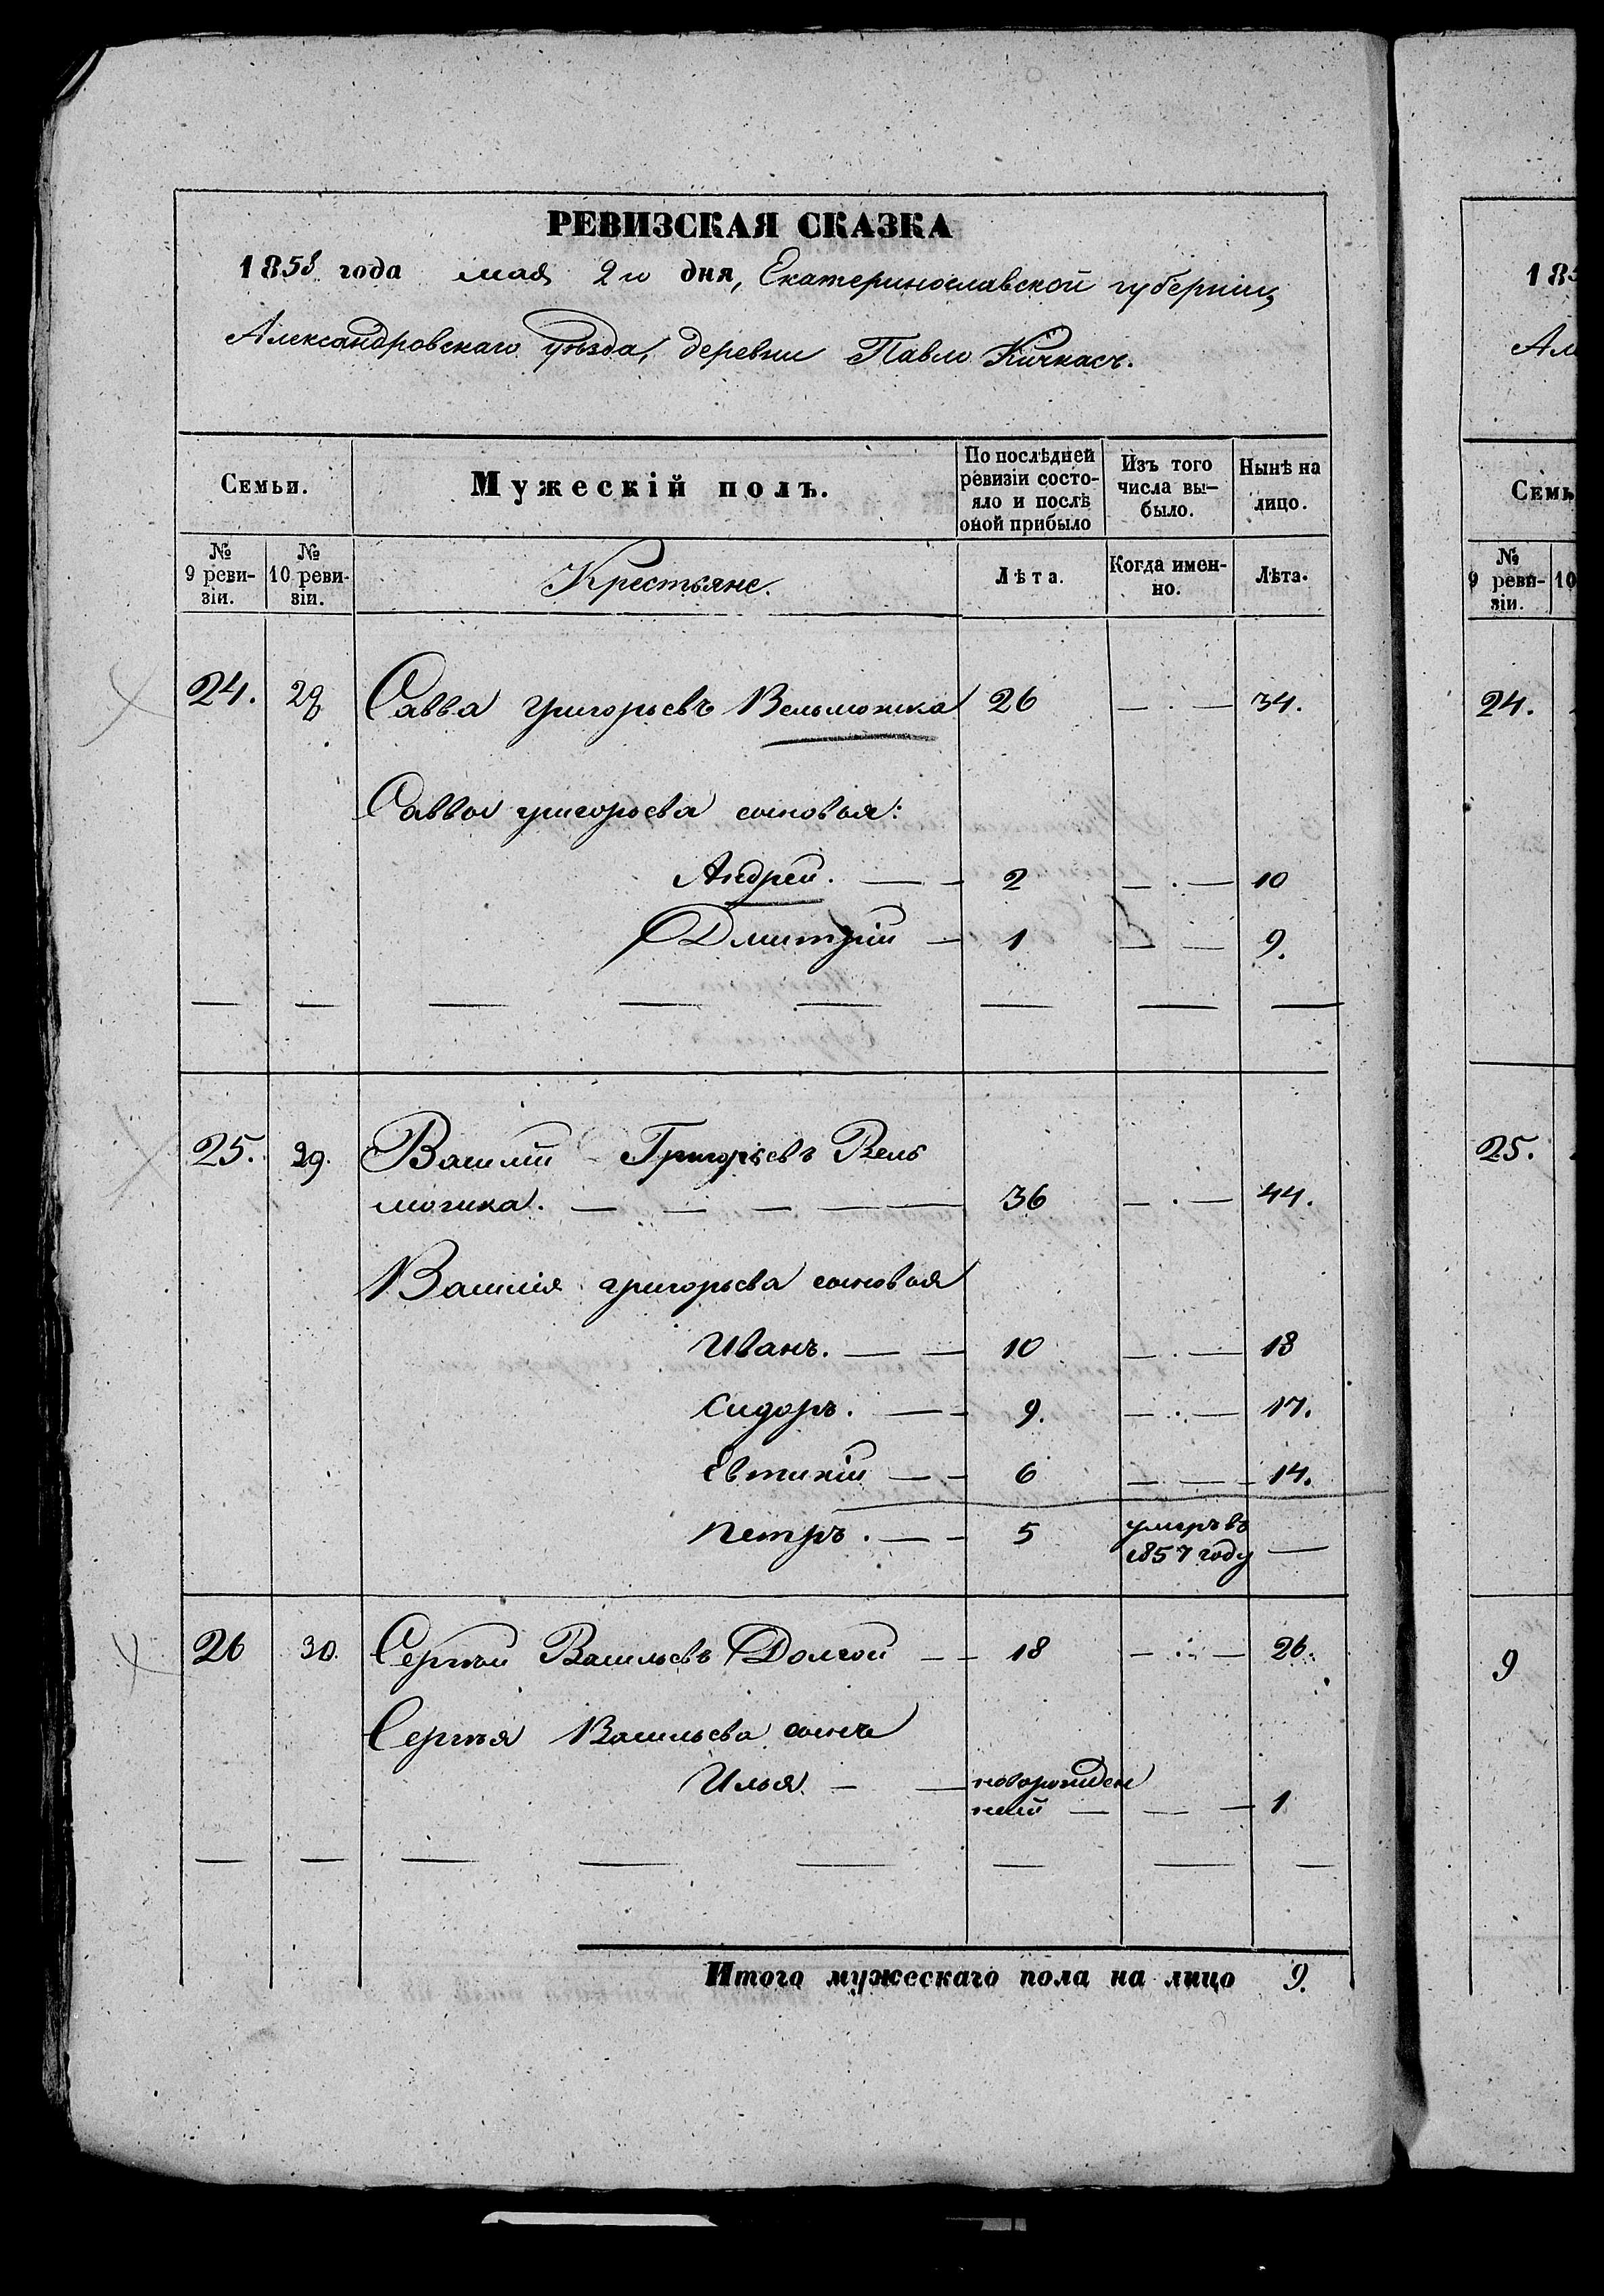 РЕВИЗСКАЯ СКАЗКА
1858 года мая 2го дня, Екатеринославской губерніи,
Александровскаго уѣзда, деревни Павло Кичкасъ.
Семьи. Мужескій полъ. По послѣдней ревизіи состояло и послѣ оной прибыло Изъ того числа вы-было. Нынѣ на лицо.
№ 9 реви-зіи. № 10 реви-зіи. Крестьяне. Лѣта. Когда имен-но. Лѣта.
24. 28 Савва Григорьевъ Вельможка 26 — . — 34.
Саввы Григорьева сыновья:
Андрей. — — 2 — . — 10
Дмитрій — 1 — — 9.
25. 29. Василій Григорьевъ Вель
можка. — — — — — 36 — . — 44.
Василія Григорьева сыновья
Иванъ. — — 10 — . — 18
Сидоръ. — — 9. — . — 17.
Евтихій — — 6 — — 14.
Петръ. — — 5 умеръ въ
1857 году —
26 30. Сергѣй Васильевъ Долгой — — 18 — . — 26.
Сергѣя Васильева сынъ
Илья. — — новорожден
ный — — — 1
Итого мужескаго пола на лицо 9.
185
Ал
Семь
№ 9 реви-зіи. 10
24.
25.
9